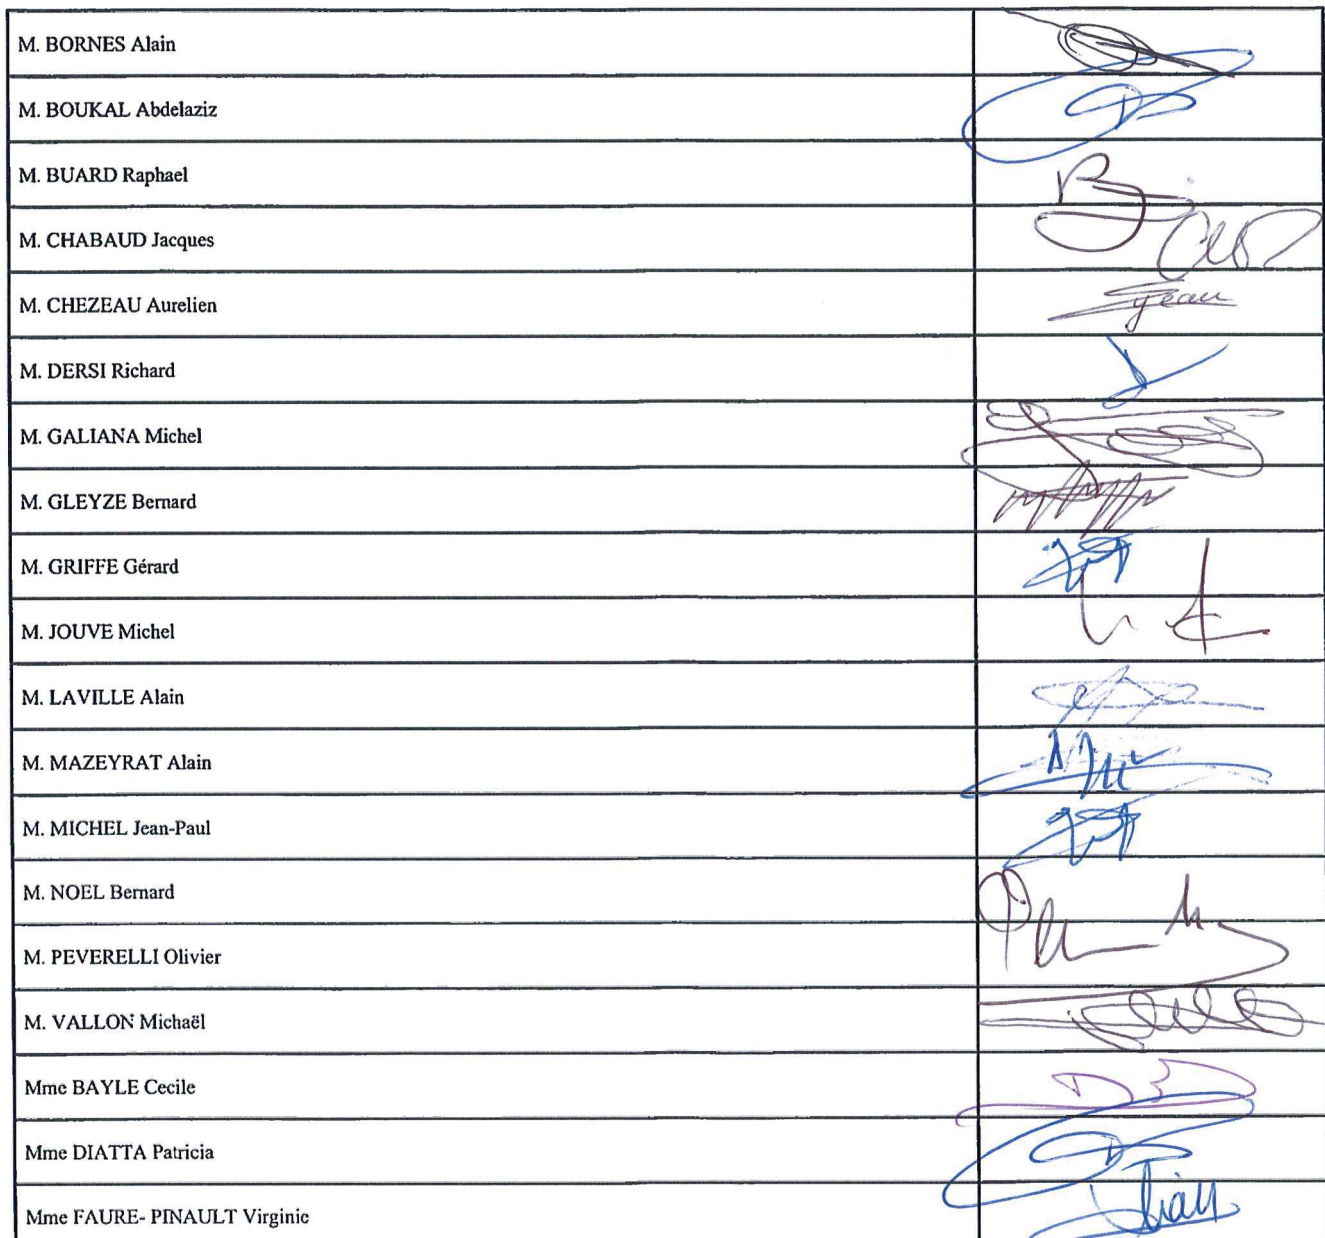 M. BORNES Alain
M. BOUKAL Abdelaziz
M. BUARD Raphael
M. CHABAUD Jacques
M. CHEZEAU Aurelien
M. DERSI Richard
M. GALIANA Michel
M. GLEYZE Bernard
M. GRIFFE Gérard
M. JOUVE Michel
M. LAVILLE Alain
M. MAZEYRAT Alain
M. MICHEL Jean-Paul
M. NOEL Bernard
M. PEVERELLI Olivier
M. VALLON Michaël
Mme BAYLE Cecile
Mme DIATTA Patricia
Mme FAURE- PINAULT Virginie